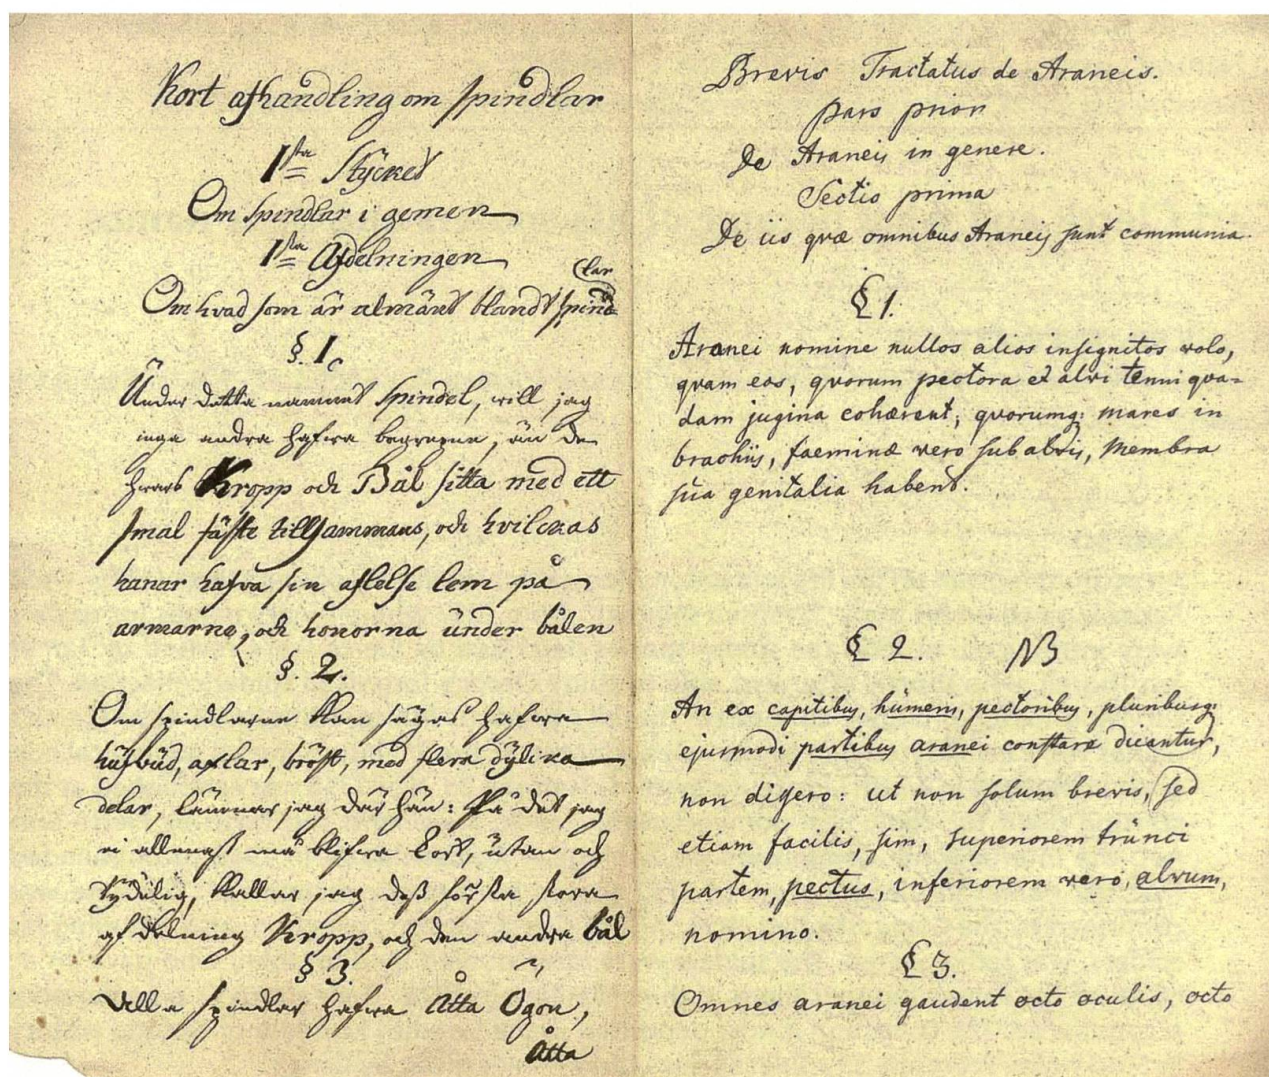 Kort afhandling om spindlar
1sta Stycket
Om spindlar i gemen
1sta Afdelningen
Om hvad som är almänt blandt spind-
(lar
§. 1.
Under detta namnet Spindel, will jag
inga andra hafwa begrepne, än de
hwars Kropp och Bål sitta med ett
smal fäste tillsammans, och hvilckas
hanar hafva sin aflelse lem på
armarne, och honorna under bålen
§. 2.
Om spindlarne kan sägas hafwa
hufvud, axlar, bröst, med flera dylika
delar, lämnar jag där hän: På det jag
ei allenast må blifwa kort, utan och
tydelig, kallar jag dess första stora
afdelning Kropp, och den andra bål
§ 3.
Alla spindlar hafwa Åtta Ögon,
Åtta
Brevis Tractatus de Araneis.
pars prior
De Araneis in genere.
Sectio prima
De iis qvæ omnibus Araneis sunt communia.
§ 1.
Aranei nomine nullos alios insignitos volo,
qvam eos, qvorum pectora et alvi tenui qva-
dam jugina cohærent, qvorumq; mares in
brachiis, faeminæ vero sub alvis, membra
sua genitalia habent.
§ 2. NB
An ex capitibus, humeris, pectoribus, pluribusq;
ejusmodi partibus aranei constare dicantur,
non digero: ut non solum brevis, sed
etiam facilis, sim, superiorem trunci
partem, pectus, inferiorem vero, alvum,
nomino.
§ 3.
Omnes aranei gaudent octo oculis, octo